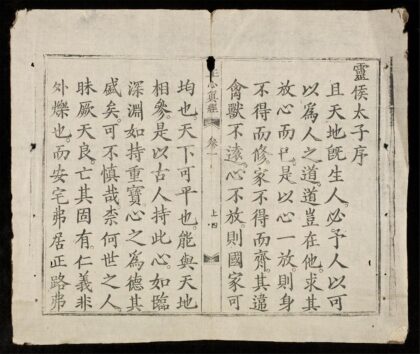 靈侯太子序
且天地既生人必予人以可
以為人之道道豈在他求其
放心而已是以心一放則身
不得而修家不得而齊其違
禽獸不遠心不放則國家可
心真經 卷一 上四
均也天下可平也能與天地
相參是以古人持此心如臨
深淵如持重寶心之為德其
盛矣可不慎哉柰何世之人
昧厥天良亡其固有仁義非
外爍也而安宅弗居正路弗